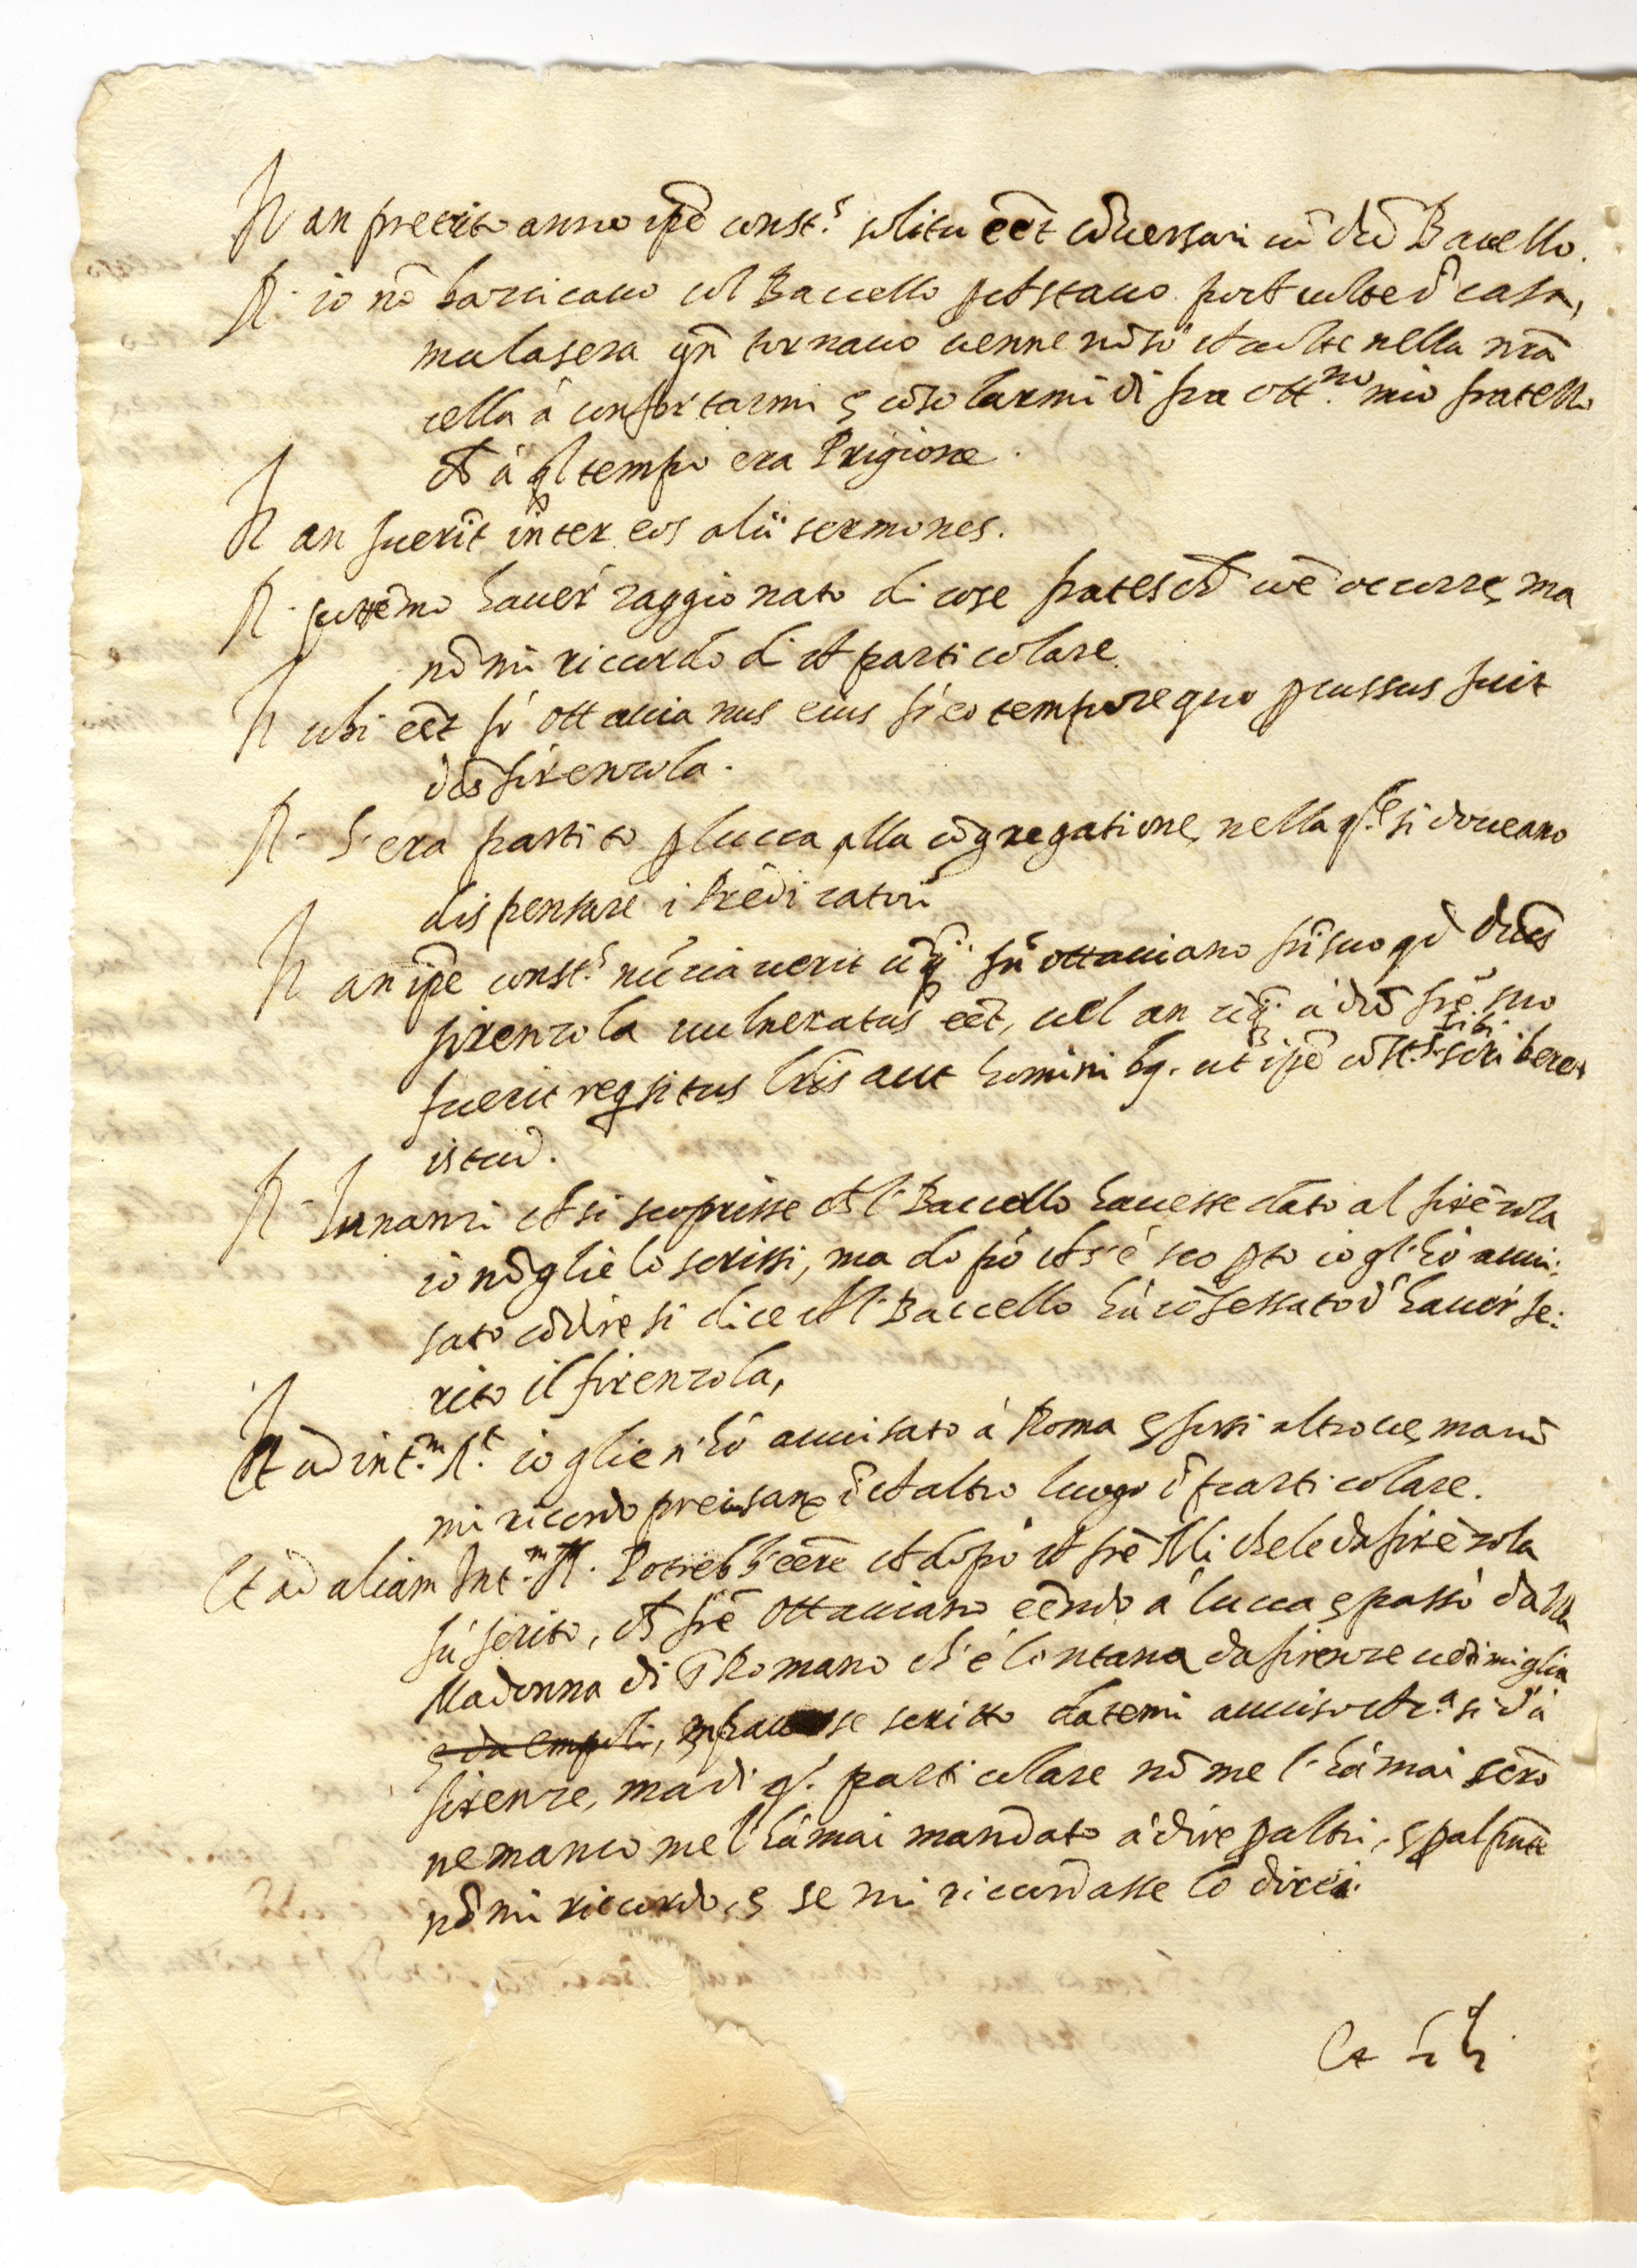 In an preterito anno ipē const.s solitu eēt cōversari cū dcō Bavello.
R. io nō barzicavo col Baccello pchè stavo poche volte ī casa,
ma la sera qn̄ tornavo venne nō sò che volte nella nrā
cella à confortarmi e cōsolarmi di fra Ott.no mio fratello
chè à ql tempo era Prigione.
In an fuerīt inter eos alii sermones.
R. potēmo haver raggionato di cose fratesche cōe occorre, ma
nō mi riccordo di che particolare.
In ubi eēt fr̄ Ottavianus eius fr̄ eo tempore quo pcussus fuit
dcs̄ firenzola.
R. S'era partito p lucca alla cōgregatione, nella qle si doveano
dispensare i Prēdicatori
In an ipē const.s nūciaverit fri ottaviano fri suo qd̄ dictus
firenzola vulneratus eēt, vel an à dcō fr̄e suo
fuerit reqsitus lris aut hominibq. ut ipē cōst.s sibi scriberet
istud.
R. Innanzi che si scoprisse chel Baccello havesse dato al firēzola
io nō glie lo scrissi, ma dopò che s'è scopto io gl'hò avvi:
sato cō dire si dice chel Baccello hà cōfessato d'haver fe:
rito il firenzola,
Et ad int.m R.t io glie n'hò avvisato à Roma e forsi altrove, ma nō
mi ricordo precisan̄ē ī che altro luogo ī particolare.
Et ad aliam Int.m R. Potrebb'eēre che dopò che frē Michele da firēzola
fù ferito, chè frē Ottaviano eēndo à lucca e passò dalla
Madonna di S Romano ch'è lontana da firenze miglia
e da Empoli, scritto datemi avviso che si dà
firenze, ma di qs. particolare nō me l'hà mai scrō
ne manco me l'hà mai mandato à dire p altri, e p al pn̄te
nō mi riccordo, e se mi riccordasse lo direi.
Et